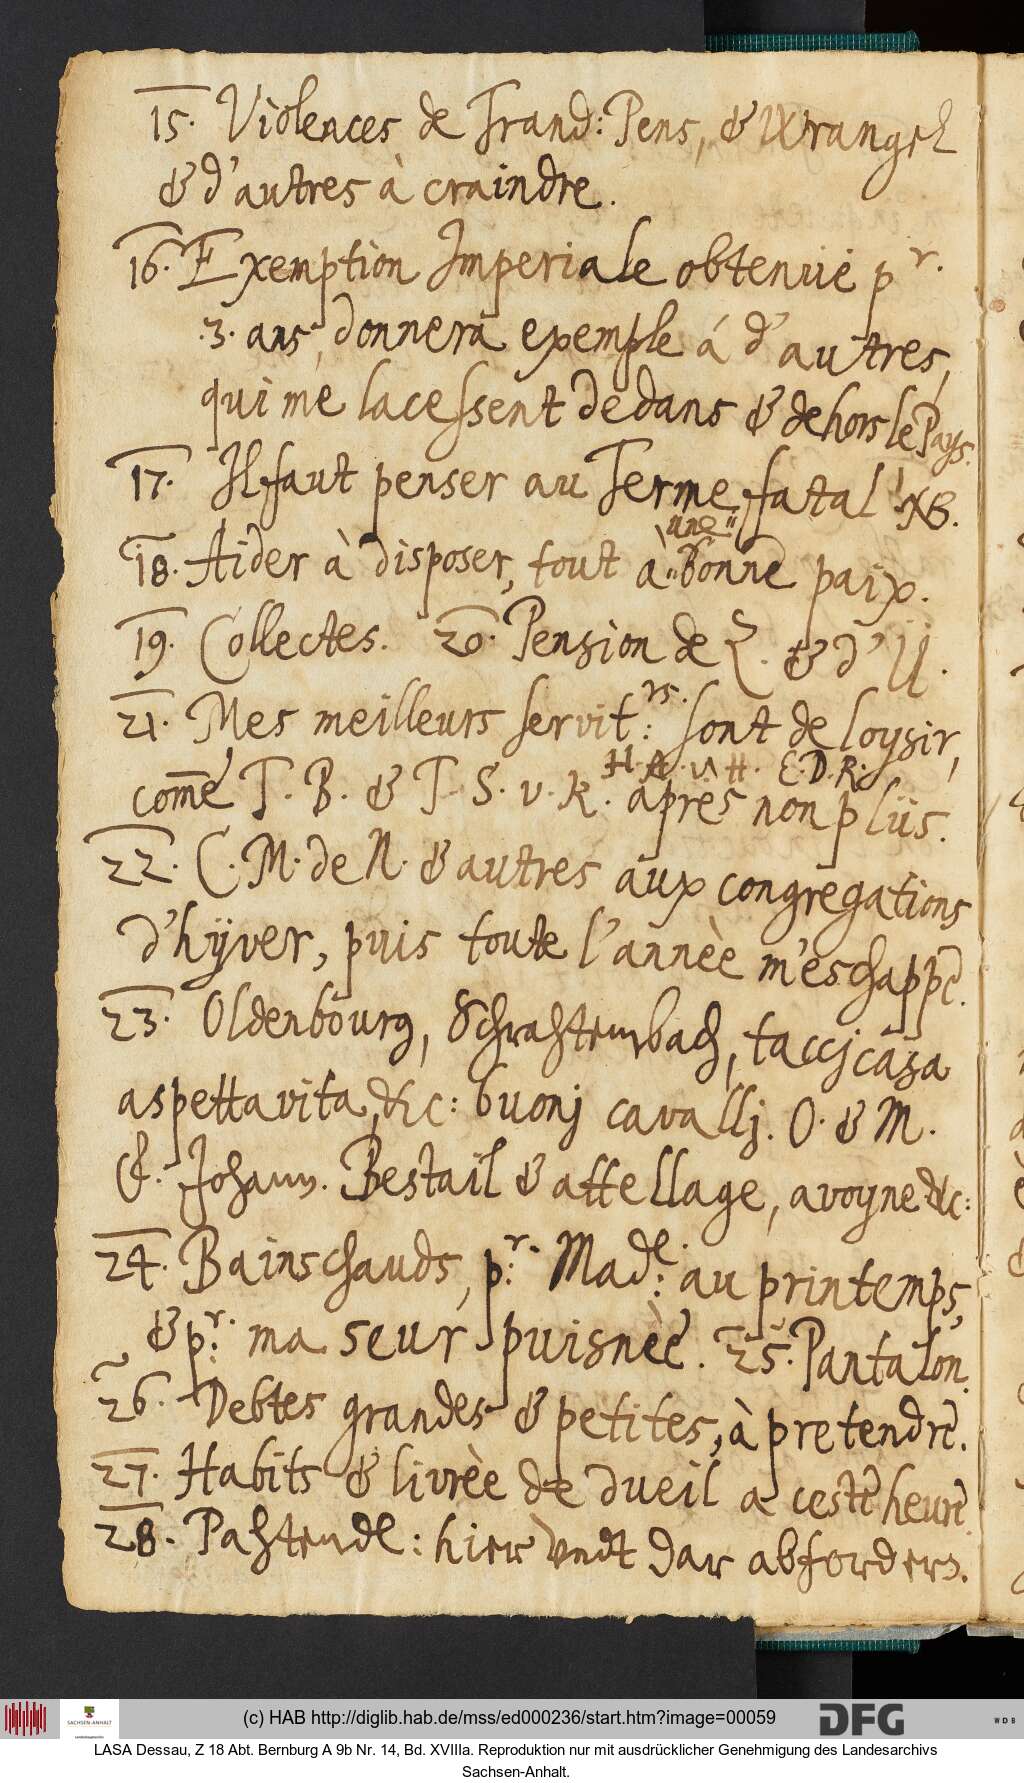 15. Violences de Frand: Pens, & Wrangel
& d'autres à craindre.
16. Exemption Imperiale obtenuë pr.
.3. ans, donnera exemple á d'autres,
qui me lacessent dedans & dehors le Pays.
17. Il faut penser au Terme fatal! NB.
18. Aider à disposer, tout à une bonne paix.
19. Collectes. 20. Pension de Z. & d' Ü.
21. Mes meilleurs servit:rs. sont de loysir,
come T. B. & T. S. v. K. H. A. v. H. E. D. R. apres non plus.
22. C. M. de N. & autres aux congregations
d'hyver, puis toute l'annèe m'eschappe.
23. Oldenbourg, Schrahtembach, taccj casa
aspetta vita, &c: buonj cavallj. O. & M.
&. Johann. Bestail & attellage, avoyne &c:
24. Bains chauds, p:r. Mad:e. au printemps,
& p:r. ma seur puisnèe. 25. Pantalon.
26. Debtes grandes & petites, à pretendre.
27. Habits & livrèe de dueil a ceste heure.
28. Pahtendl: hier vndt dar abfordern.
(c) HAB http://diglib.hab.de/mss/ed000236/start.htm?image=00059
SACHSEN-ANHALT
DFG
WDB
LASA Dessau, Z 18 Abt. Bernburg A 9b Nr. 14, Bd. XVIIIa. Reproduktion nur mit ausdrücklicher Genehmigung des Landesarchivs
Sachsen-Anhalt.